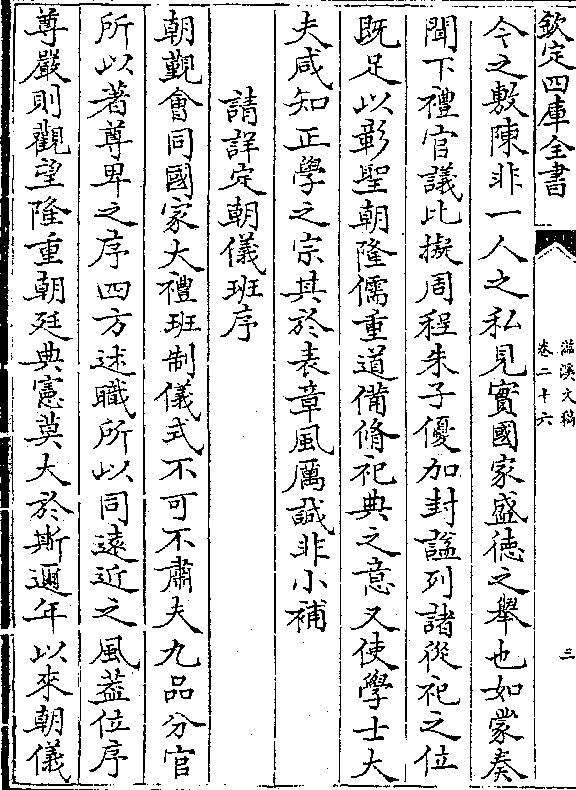 欽定四庫全書
滋溪文稿
卷二十六
三
今之敷陳非一人之私見實國家盛徳之舉也如蒙奏
聞下禮官議比擬周程朱子優加封諡列諸從祀之位
既足以彰聖朝隆儒重道備脩祀典之意又使學士大
夫咸知正學之宗其於表章風厲誠非小補
請詳定朝儀班序
朝覲會同國家大禮班制儀式不可不肅夫九品分官
所以著尊卑之序四方述職所以同逺近之風葢位序
尊嚴則觀望隆重朝廷典憲莫大於斯邇年以來朝儀